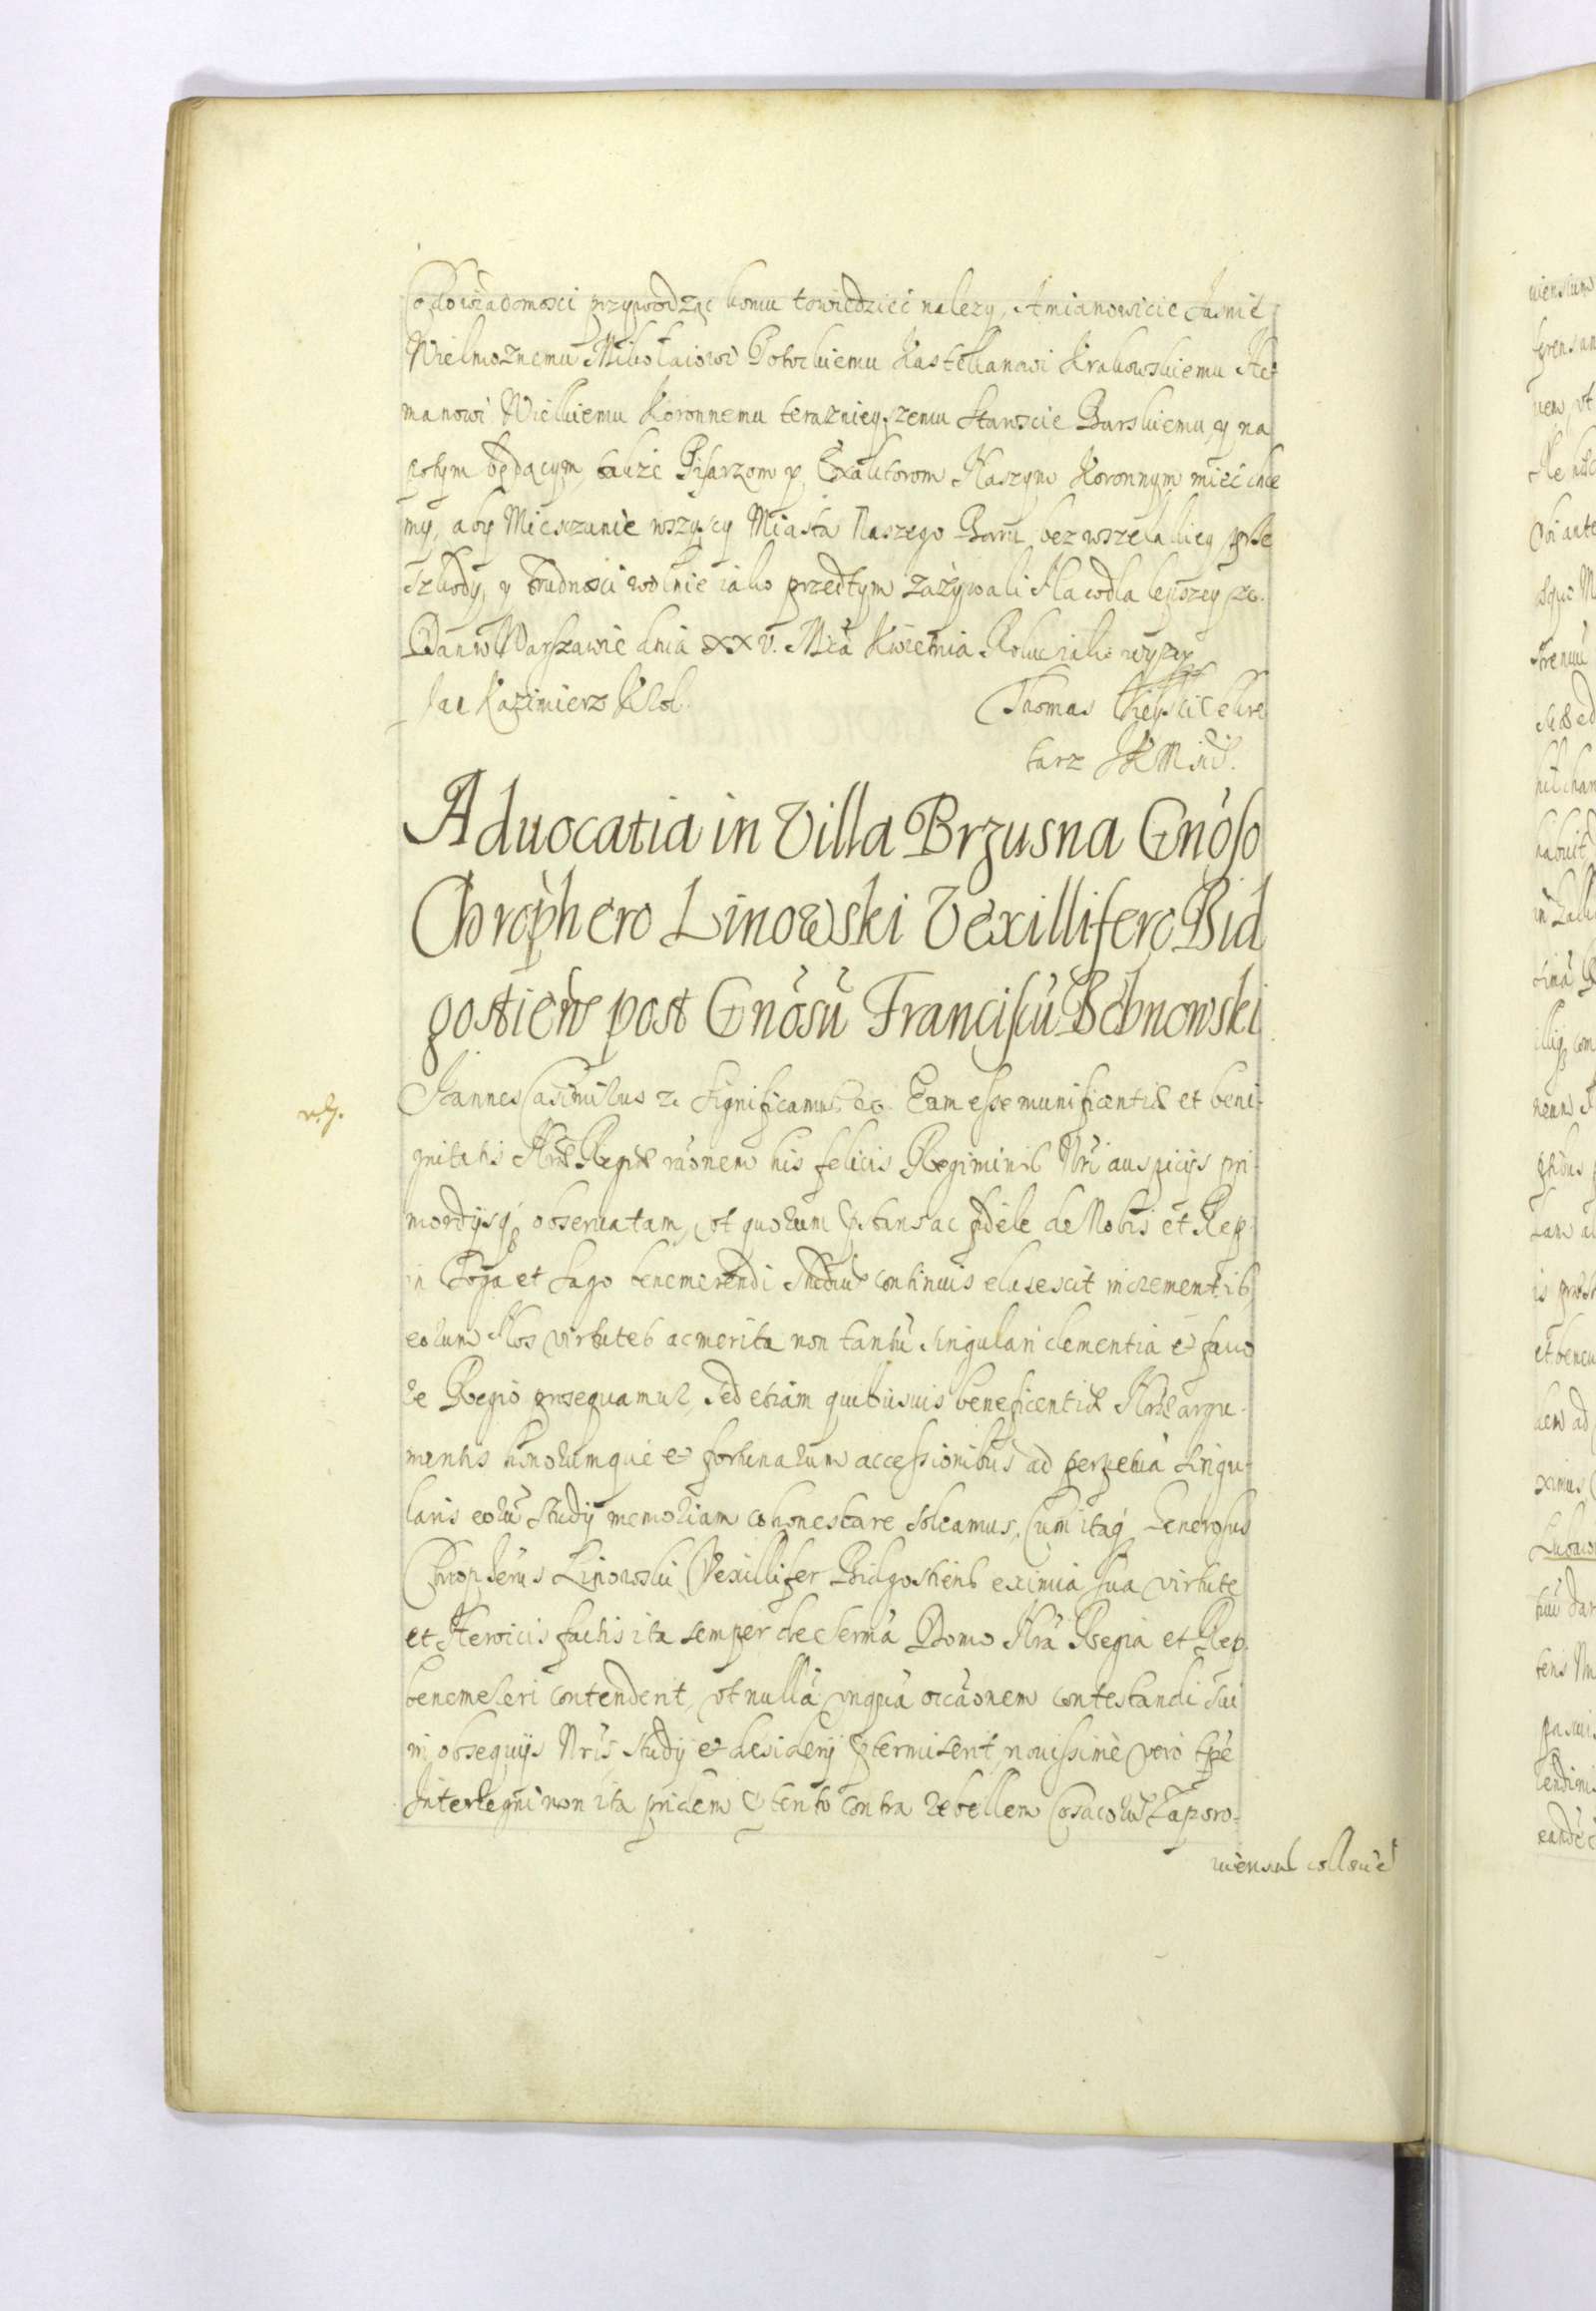 Co do wiadomosci przywodząc komu to wiedzieć nalezy, A mianowicie Jasnie
Wielmoznemu Mikołaiowi Potockiemu Kastellanowi Krakowskiemu Het
manowi Wielkiemu Koronnemu teraznieyszemu Staroscie Barskiemu, y na
potym będącym, takze Pisarzom y Exaktorom Naszym Koronnym mieć chce
my, aby Miesczanie wszyscy Miasta Naszego Baru, bez wszelakiey prze
szkody, y trudności wolnie iako przedtym zażywali Na co dla lepszey etc.
Dan w Warszawie dnia XXV. Mca Kwietnia Roku iako wyzey
Jan Kazimierz Krol. Thomas Uieyski Sekre
tarz JKMsci.
Aduocatia in Villa Brzusna Gnoso
Chrophero Linowski Vexillifero Bid
gostien post Gnosu Franciscu Bebnowski
Joannes Casimirus etc. Significamus etc. Eam esse munificentiæ et beni
gnitatis Nræ Regiæ raonem his felicis Regiminis Nri auspicijs pri
mordijsq obseruatam, vt quorum constans ac fidele de Nobis et Rep.
in Toga et Sago benemerendi studium continuis clarescit incrementis,
eorum Nos virtutes ac merita non tantu singulari clementia et fauo
re Regio prosequamur, sed etiam quibusuis beneficentiæ Nræ argu
mentis honorumque et fortunarum accessionibus ad perpetua singu
laris eoru studij memoriam cohonestare soleamus, Cum itaq Generosus
Chropherus Linowski Vexillifer Bidgostiens eximia sua virtute
et Heroicis factis ita semper de Serma Domo Nra Regia et Rep.
benemereri contenderit, vt nulla vnqua occaonem contestandi sui
in obsequijs Nris, studij et desiderij prætermiserit, nouissime vero tpe
Interregni non ita pridem contra rebellem Cosacorum Zaporo-
uiensium